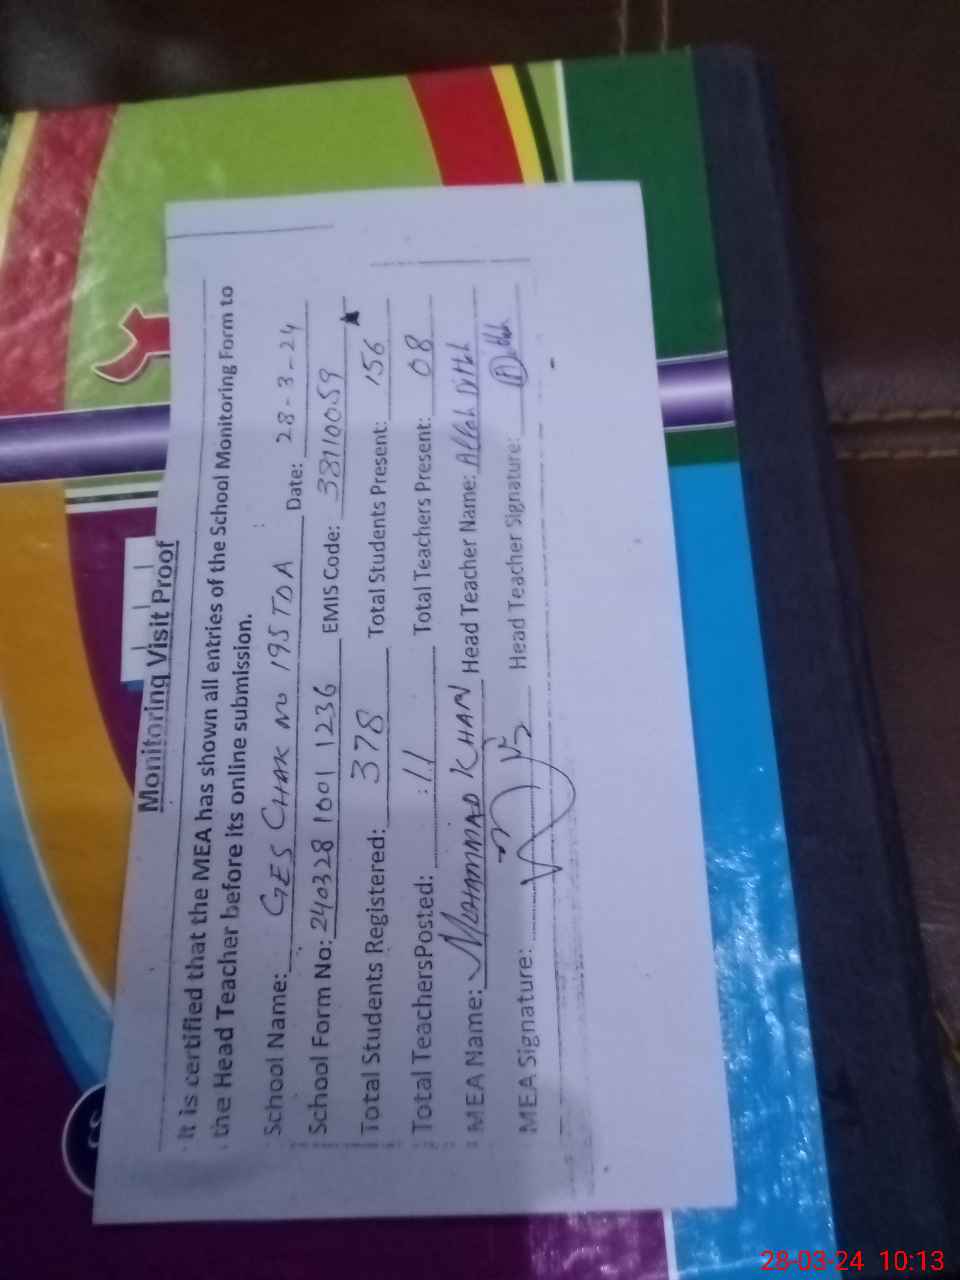 Monitoring Visit Proof
It is certified that the MEA has shown all entries of the School Monitoring Form to
the Head Teacher before its online submission.
School Name: GES CHAK NO 195 TDA Date: 28-3-24
School Form No: 240328 1001 1236 EMIS Code: 38110059
Total Students Registered: 378 Total Students Present: 156
Total TeachersPosted: 11 Total Teachers Present: 08
MEA Name: MOHMMAD KHAN Head Teacher Name: Allah Ditth
MEA Signature: Head Teacher Signature:
28-03-24 10:13